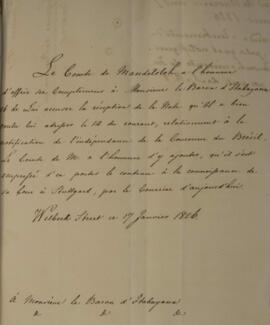 Le Comte de Mandelsloh a l'honneur
d'offrir ses Complimens à Monsieur le Baron d'Itabayana
et de Lui accuser la réception de la Note qu'Il a bien
voulu lui adresser le 16 du courant, relativement à la
notification de l'indépendance de la Couronne du Brésil.
Le Comte de M. a l'honneur d'y ajouter, qu'il s'est
empressé d'en porter le contenu à la connaissance de
Sa Cour à Stuttgard, par le Courrier d'aujourd'hui.
Welbeck Street ce 17 Janvier 1826.
à Monsieur le Baron d'Itabayana